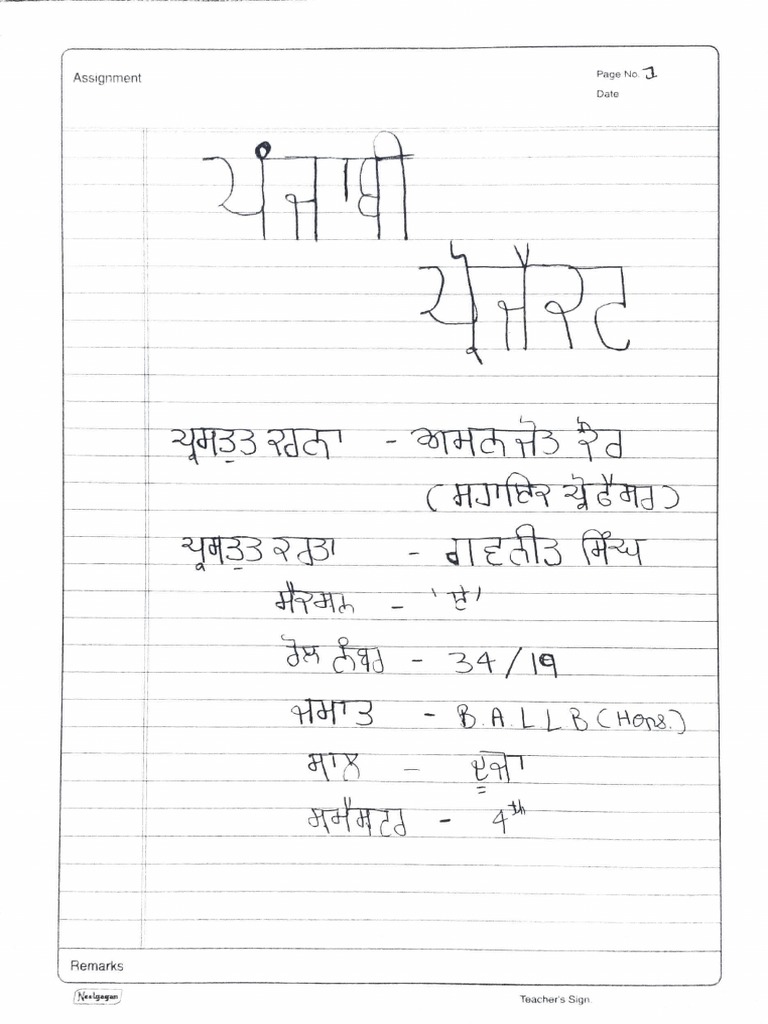 Assignment
Page No. 1
Date
ਪੰਜਾਬੀ
ਪ੍ਰੋਜੈਕਟ
ਪ੍ਰਸਤੁਤ ਕਰਨਾ - ਅਮਨਜੋਤ ਕੌਰ
(ਸਹਾਇਕ ਪ੍ਰੋਫੈਸਰ)
ਪ੍ਰਸਤੁਤ ਕਰਤਾ - ਗਵਨੀਤ ਸਿੰਘ
ਸੈਕਸ਼ਨ - 'ਏ'
ਰੋਲ ਨੰਬਰ - 34/19
ਜਮਾਤ - B.A.LLB (Hons.)
ਸਾਲ - ਦੂਜਾ
ਸਮੈਸਟਰ - 4th
Remarks
Neelgagan
Teacher's Sign.